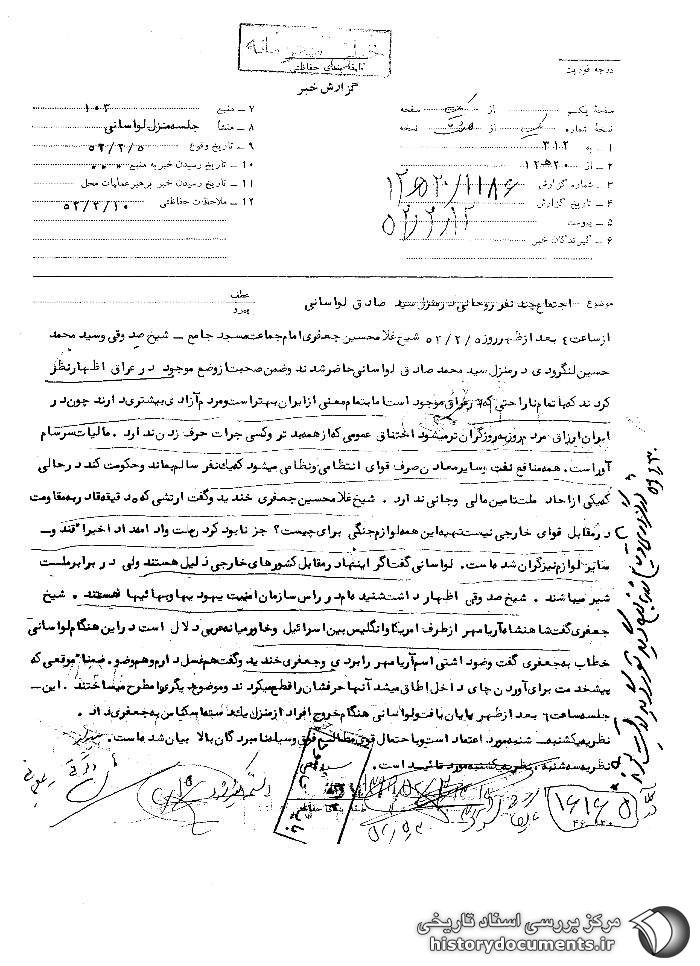 خیلی محرمانه
طبقه بندی حفاظتی
گزارش خبر
درجه فوریت
صفحه یکم از یک صفحه
نسخه شماره از نسخه
۱ – به ۳۱۲
۲ – از ۲۰ هـ ۱۲
۳ – شماره گزارش ۱۱۸۶/۲۰ هـ ۱۲
۴ – تاریخ گزارش ۵۲/۲/۱۲
۵ – پیوست
۶ – گیرندگان خبر
۷ – منبع ۱۰۴۳
۸ – منشأ جلسه منزل لواسانی
۹ – تاریخ وقوع ۵۲/۲/۵
۱۰ – تاریخ رسیدن خبر به منبع
۱۱ – تاریخ رسیدن خبر برهبر عملیات محل
۱۲ – ملاحظات حفاظتی ۵۲/۲/۱۰
موضوع : اجتماع چند نفر روحانی در منزل سید صادق لواسانی
عطف
پیرو
از ساعت ٤ بعد از ظهر روز ۵۲/۲/۵ شیخ غلامحسین جعفری امام جماعت مسجد جامع – شیخ صدوقی و سید محمد
حسین لنگرودی در منزل سید محمد صادق لواسانی حاضر شدند و ضمن صحبت از وضع موجود در عراق اظهار نظر
کردند که با تمام ناراحتی که در عراق موجود است اما بتمام معنی از ایران بهتر است و مردم آزادی بیشتری دارند چون در
ایران ارزاق مردم روز به روز گران تر میشود اختناق عمومی که از همه بدتر و کسی جرات حرف زدن ندارد . مالیات سرسام
آور است . همه منافع نفت و سایر معادن صرف قوای انتظامی و نظامی میشود که یک نفر سالم بماند و حکومت کند در حالی
که یکی از احاد ملت تامین مالی و جانی ندارد . شیخ غلامحسین جعفری خندید و گفت ارتشی که ده دقیقه قادر به مقاومت
در مقابل قوای خارجی نیست تهیه این همه لوازم جنگی برای چیست ؟ جز نابود کردن ملت و امداد اخیرا قند و –
سایر لوازم نیز گران شده است . لواسانی گفت اگر اینها در مقابل کشورهای خارجی ذلیل هستند ولی در برابر ملت
شیر میباشند . شیخ صدوقی اظهار داشت شنیده ام در راس سازمان امنیت یهودیها و بهائیها هستند . شیخ
جعفری گفت شاهنشاه آریامهر از طرف امریکا و انگلیس بین اسرائیل و خاورمیانه عربی دلال است در این هنگام لواسانی
خطاب به جعفری گفت وضو داشتی اسم آریامهر را بردی و جعفری خندید و گفت هم غسل دارم و هم وضو . ضمنا موقعی که
پیشخدمت برای آوردن چای داخل اطاق میشد آنها حرفشان را قطع میکردند و موضوع دیگری را مطرح میساختند . این –
جلسه ساعت ٦ بعد از ظهر پایان یافت و لواسانی هنگام خروج افراد از منزل یک دسته اسکناس به جعفری داد .
نظریه یکشنبه . شنبه مورد اعتماد است و با احتمال قوی مطالب فوق وسیله نامبردگان بالا بیان شده است .
نظریه سه شنبه . نظریه یکشنبه مورد تائید است .
طبقه بندی حفاظتی
۱۶۱۶۵
مرکز بررسی اسناد تاریخی
historydocuments.ir